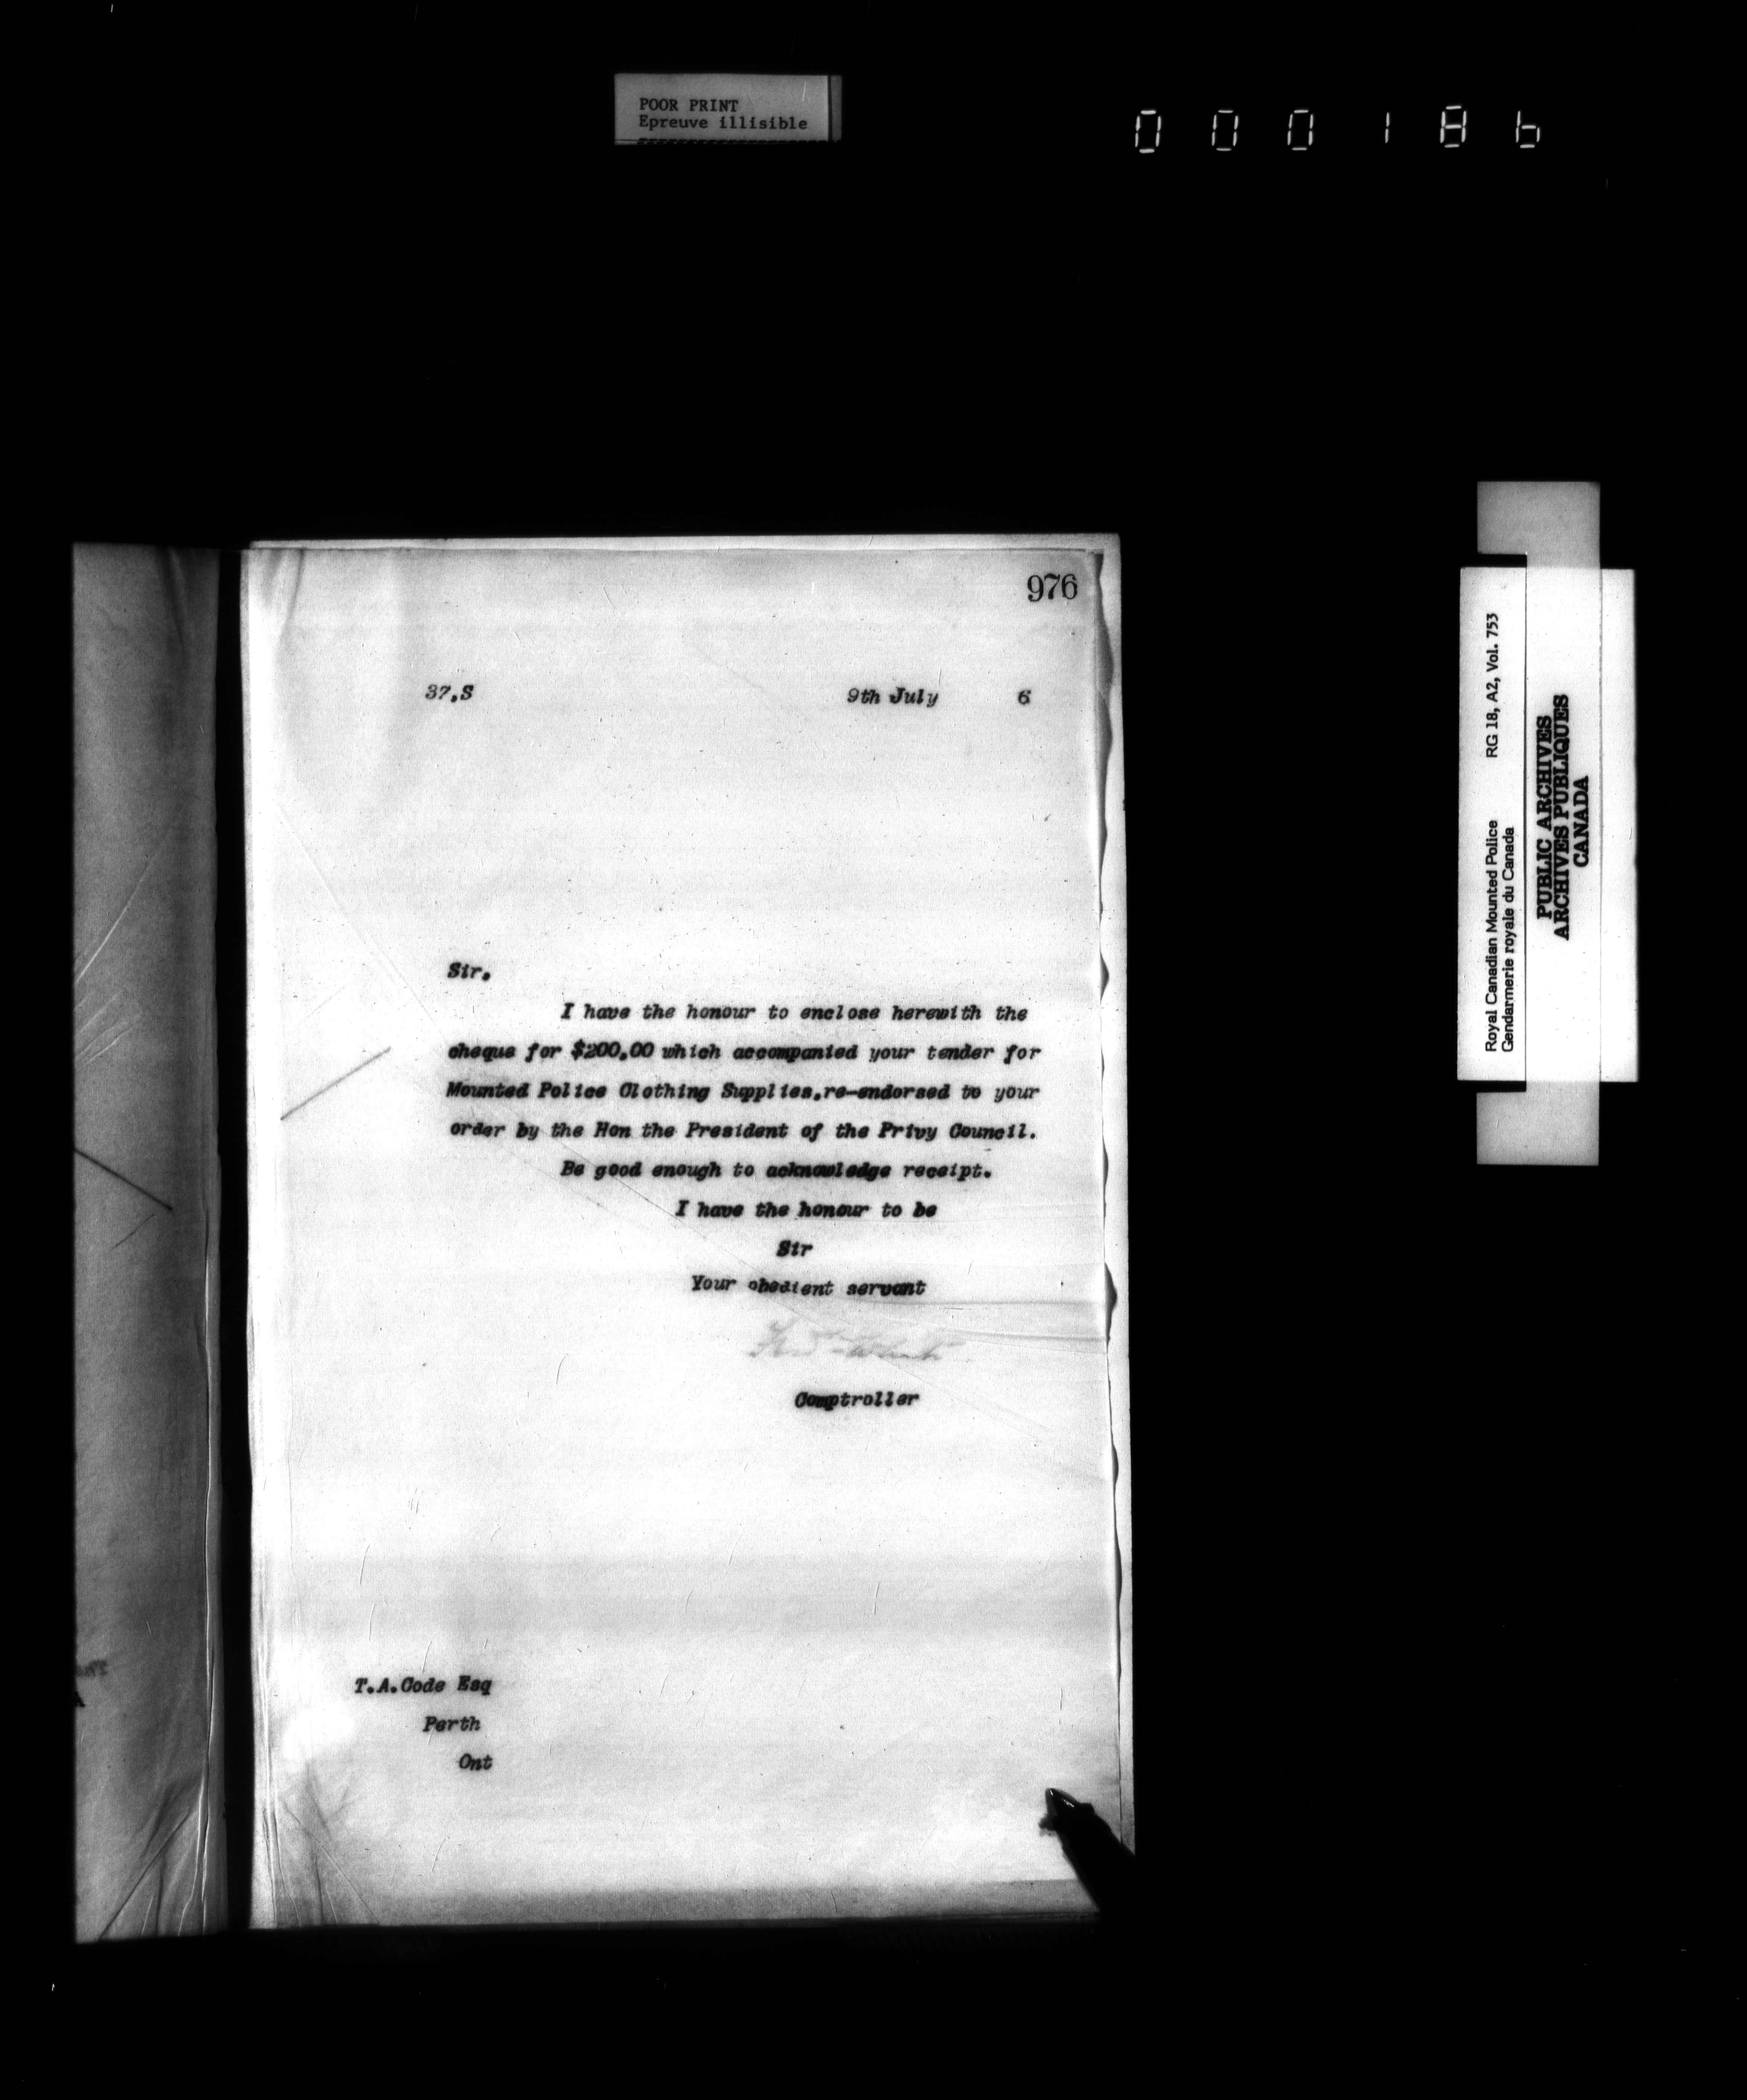 POOR PRINT
Epreuve illisible
000186
976
37.S 9th July 6
Sir.
I have the honour to enclose herewith the
cheque for $200.00 which accompanied your tender for
Mounted Police Clothing Supplies,re-endorsed to your
order by the Hon the President of the Privy Council.
Be good enough to acknowledge receipt.
I have the honour to be
Sir
Your obedient servant
Fred White
Comptroller
T.A.Code Esq
Perth
Ont
Royal Canadian Mounted Police RG 18, A2, Vol. 753
Gendarmerie royale du Canada
PUBLIC ARCHIVES
ARCHIVES PUBLIQUES
CANADA